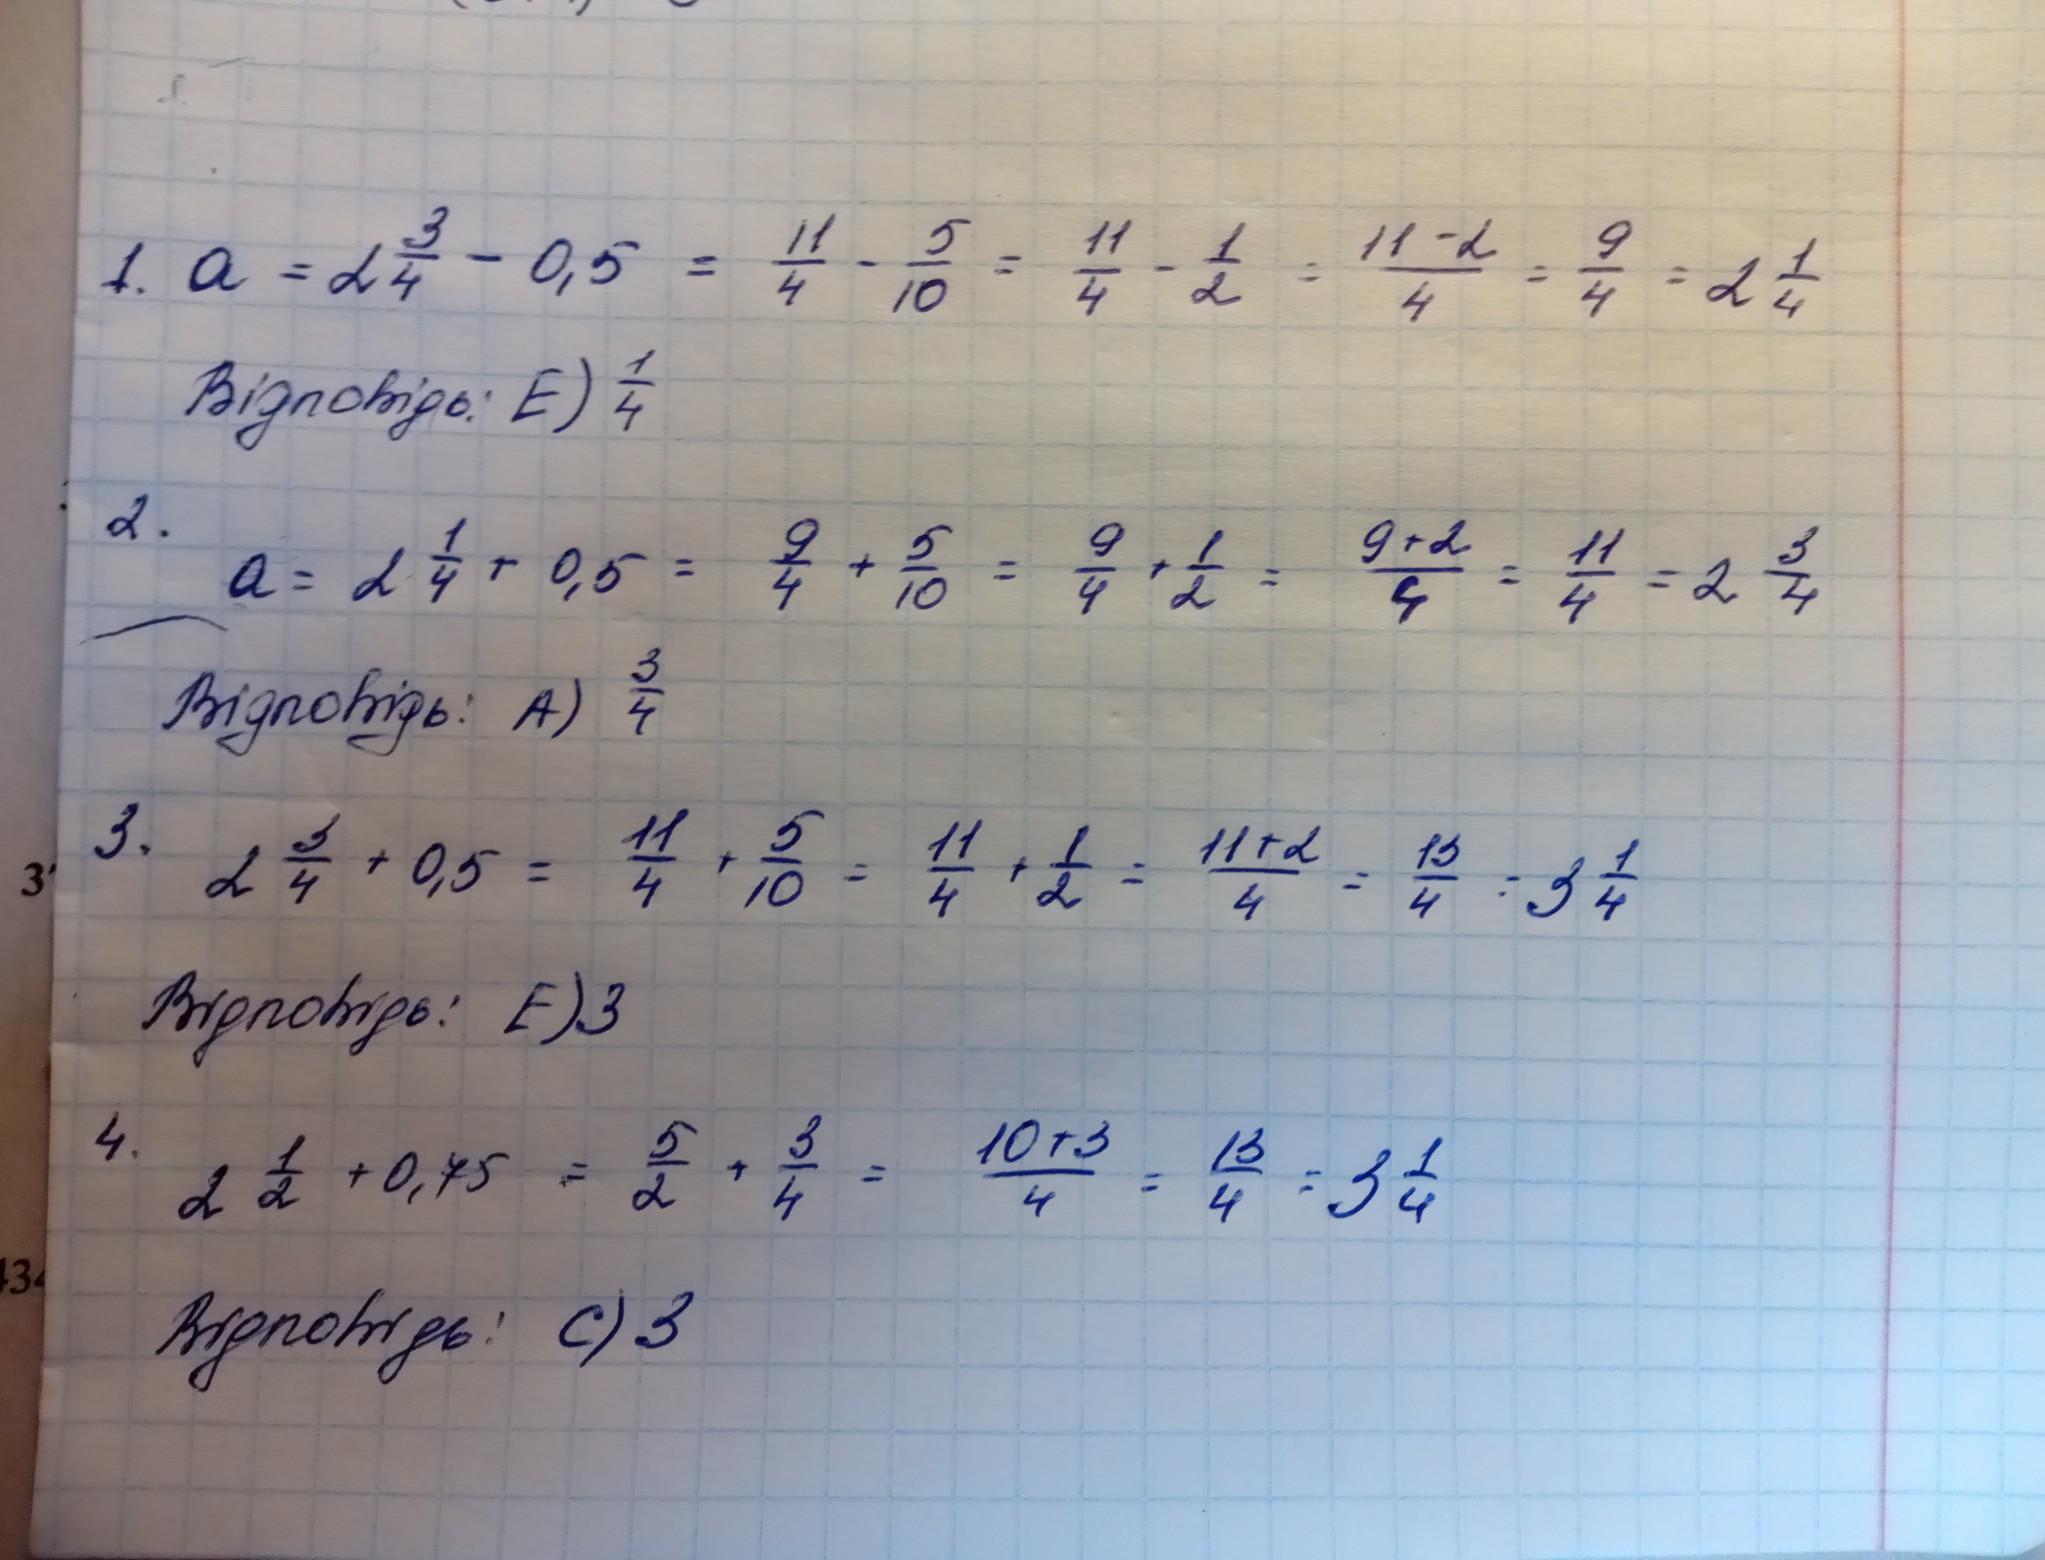 1. a = 2 3/4 - 0,5 = 11/4 - 5/10 = 11/4 - 1/2 = (11-2)/4 = 9/4 = 2 1/4
Відповідь: E) 1/4
2.
a = 2 1/4 + 0,5 = 9/4 + 5/10 = 9/4 + 1/2 = (9+2)/4 = 11/4 = 2 3/4
Відповідь: A) 3/4
3. 2 3/4 + 0,5 = 11/4 + 5/10 = 11/4 + 1/2 = (11+2)/4 = 13/4 = 3 1/4
Відповідь: E) 3
4. 2 1/2 + 0,75 = 5/2 + 3/4 = (10+3)/4 = 13/4 = 3 1/4
Відповідь: C) 3